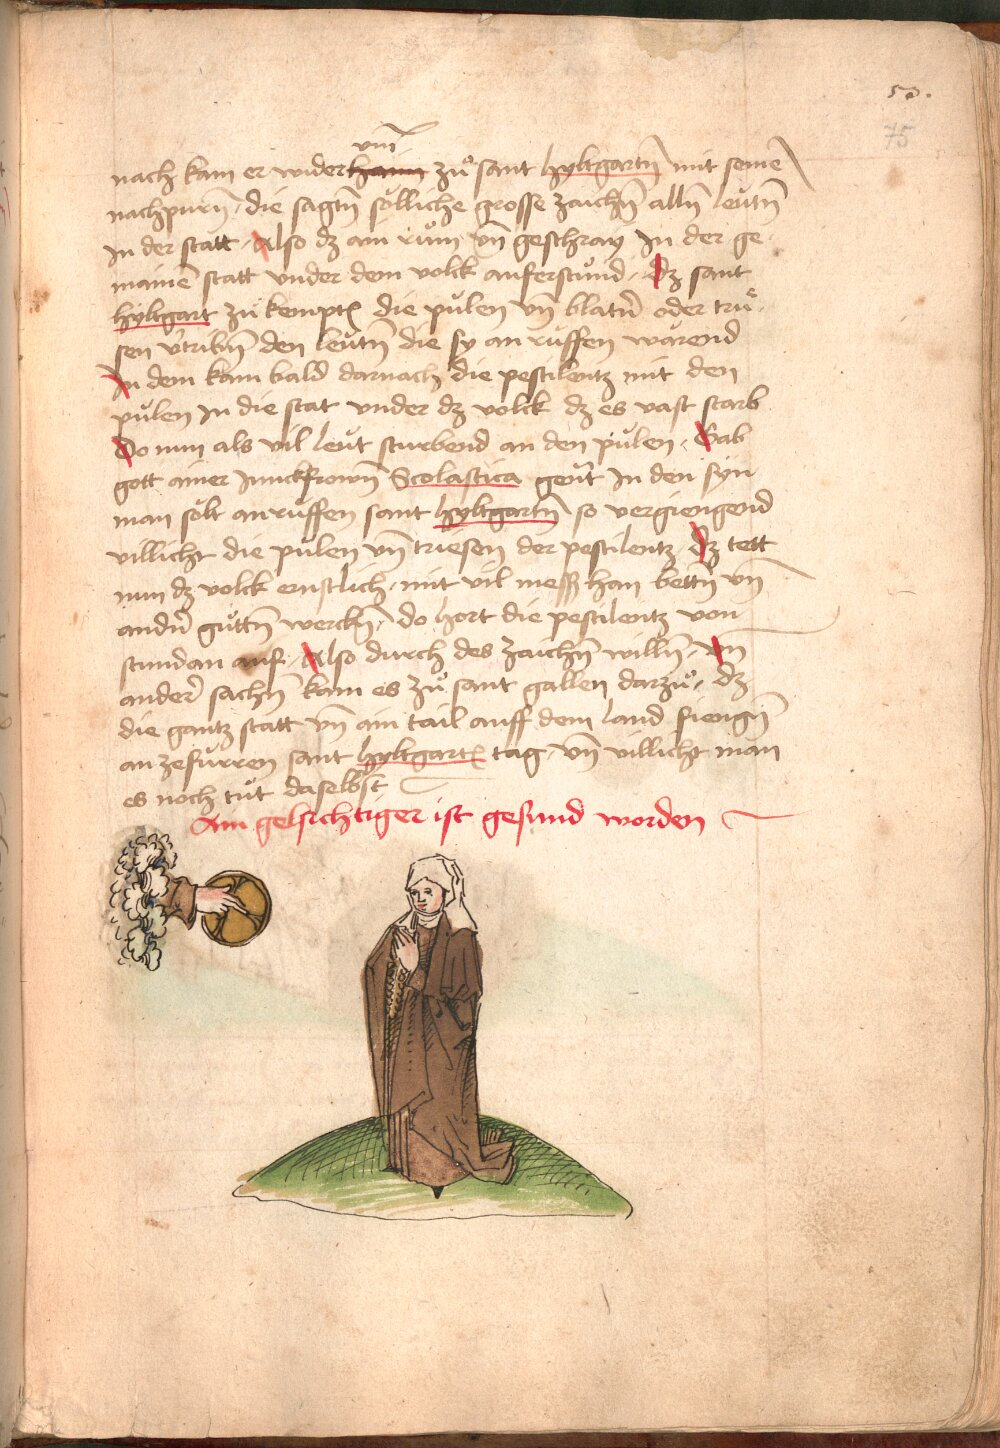 50.
75
vmͥ
nach kam er wider haim zuͦ sant hyltgartn̄ mit seinē
nachpurn̄ · die sagtn̄ soͤlliche grosse zaichn̄ alln̄ leuͤtn̄
In der statt · Also dz ain ruͦm vn̄ geschray In der ge
mainē statt vnder dem volck aufferstuͦnd · dz sant
hyltgart zuͦ kempten die puͤlen vn̄ blatern̄ oder truͤ
sen vertribn̄ den leuͤtn̄ die sy an ruͤffen waͤrend
In dem kam bald darnach die pestilentz mit den
puͤlen In die stat vnder dz volck dz es vast starb
Do nun als vil leuͤt sturbend an den puͤlen · Gab
gott ainer Junckfrown̄ Scolastica gent̄ In den syn
man soͤlt anruͤffen sant hyltgartn̄ so vergiengend
villicht die puͤlen vn̄ triesen der pestilentz · dz tett
nun dz volck ernstlich · mit vil mess han bettn̄ vn̄
andern̄ guͦttn̄ werckn̄ · do hort die pestilentz von
stundan auf · Also durch des zaichn̄ willn̄ · vn̄
anderer sachn̄ kam es zuͦ sant gallen darzuͦ · dz
die gantz statt vn̄ ain tail auff dem land fiengn̄
an ze fuͤrren sant hyltgarten tag · vn̄ villicht man
es noch tuͦt daselbst
Ain gelsichtiger ist gesund worden